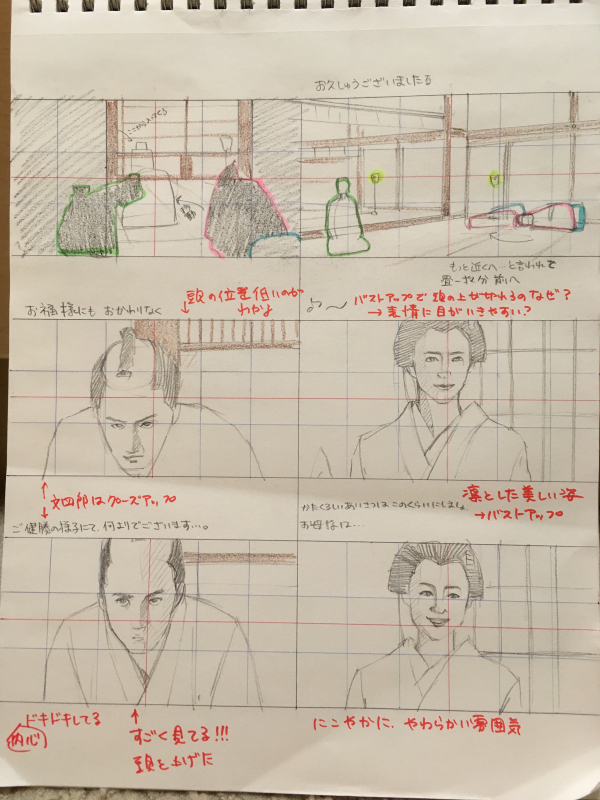 お久しゅうございまする
ここから入ってくる
移動
もっと近くへ…と言われて
畳一枚分 前へ
お福様にも おかわりなく
頭の位置 低いのが
わかる
バストアップで 頭の上が切れるのなぜ?
→ 表情に目がいきやすい?
文四郎はクローズアップ
ご健勝の様子にて、何よりでございます…。
凛とした美しい姿
→バストアップ
かたくるしいあいさつはこのくらいにしましょ
お母様は…
ドキドキしてる
内心
すごく見てる!!!
頭を上げた
にこやかに、やわらかい雰囲気